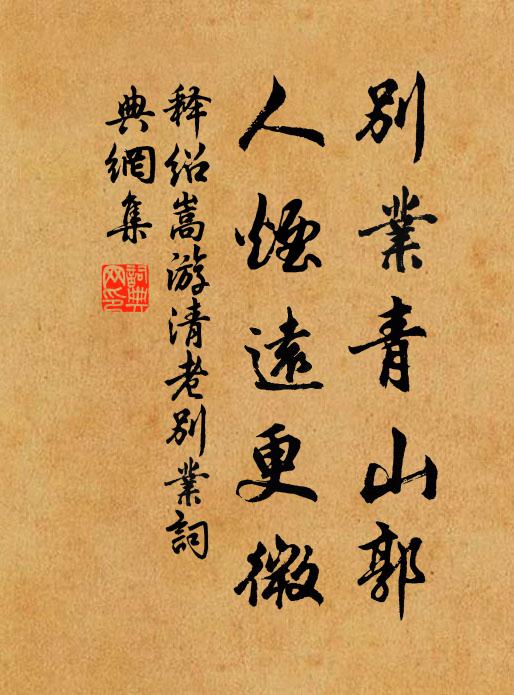 别業青山郭
人煙遠更微
释绍嵩游清老别業詞
典網集
詞典网印